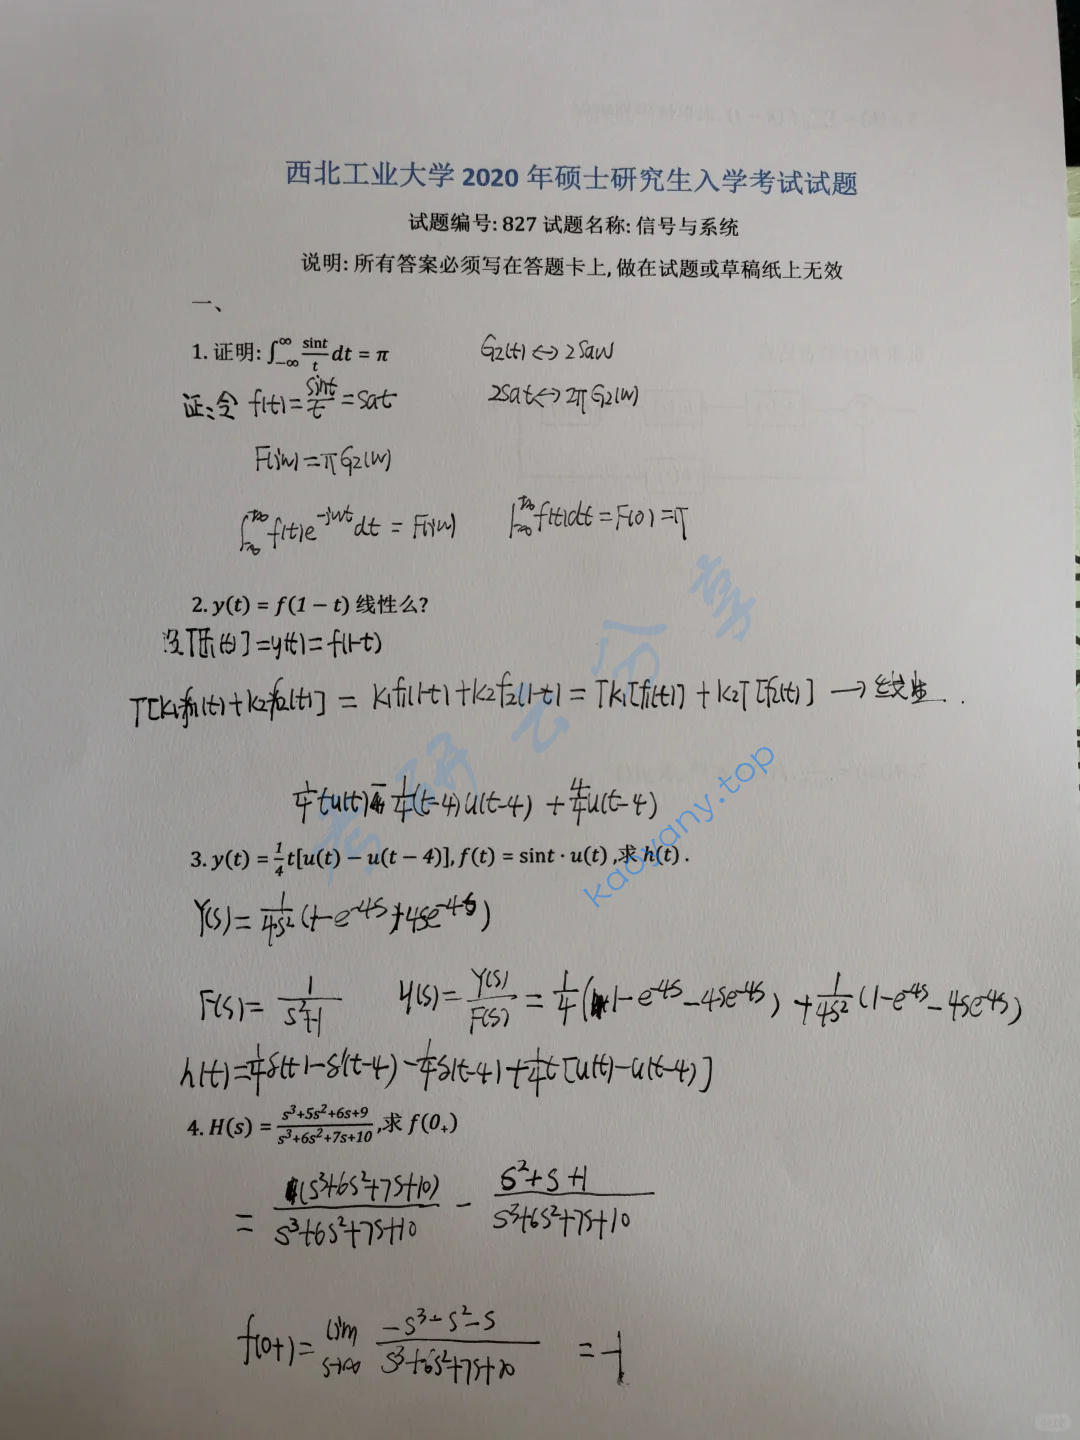 西北工业大学 2020 年硕士研究生入学考试试题
试题编号: 827 试题名称: 信号与系统
说明: 所有答案必须写在答题卡上, 做在试题或草稿纸上无效
一、
1. 证明: ∫_{-∞}^{∞} sint/t dt = π
G2(t) ↔ 2Saw
证: 令 f(t) = sint/t = Sat
2Sat ↔ 2πG2(w)
F(jw) = πG2(w)
∫_{-∞}^{+∞} f(t)e^{-jwt}dt = F(jw)
∫_{-∞}^{+∞} f(t)dt = F(0) = π
2. y(t) = f(1 − t) 线性么?
设T[f(t)] = y(t) = f(1-t)
T[k1f1(t)+k2f2(t)] = k1f1(1-t)+k2f2(1-t) = Tk1[f1(t)] + k2T[f2(t)] → 线性.
1/4 tu(t) - 1/4(t-4)u(t-4) + 4/4 u(t-4)
3. y(t) = 1/4 t[u(t) − u(t − 4)], f(t) = sint · u(t) ,求 h(t) .
Y(s) = 1/4s² (1-e^{-4s}+4se^{-4s})
F(s) = 1/(s²+1)
H(s) = Y(s)/F(s) = 1/4 (1-e^{-4s}-4se^{-4s}) + 1/4s² (1-e^{-4s}-4se^{-4s})
h(t) = 1/4 δ(t) - δ'(t-4) - 1/4 δ(t-4) + 1/4 t [u(t)-u(t-4)]
4. H(s) = (s³+5s²+6s+9)/(s³+6s²+7s+10) ,求 f(0₊)
= (s³+6s²+7s+10)/(s³+6s²+7s+10) - (s²+s+1)/(s³+6s²+7s+10)
f(0+) = lim s→∞ (-s³-s²-s)/(s³+6s²+7s+10) = -1
考研云分享
kaoyany.top